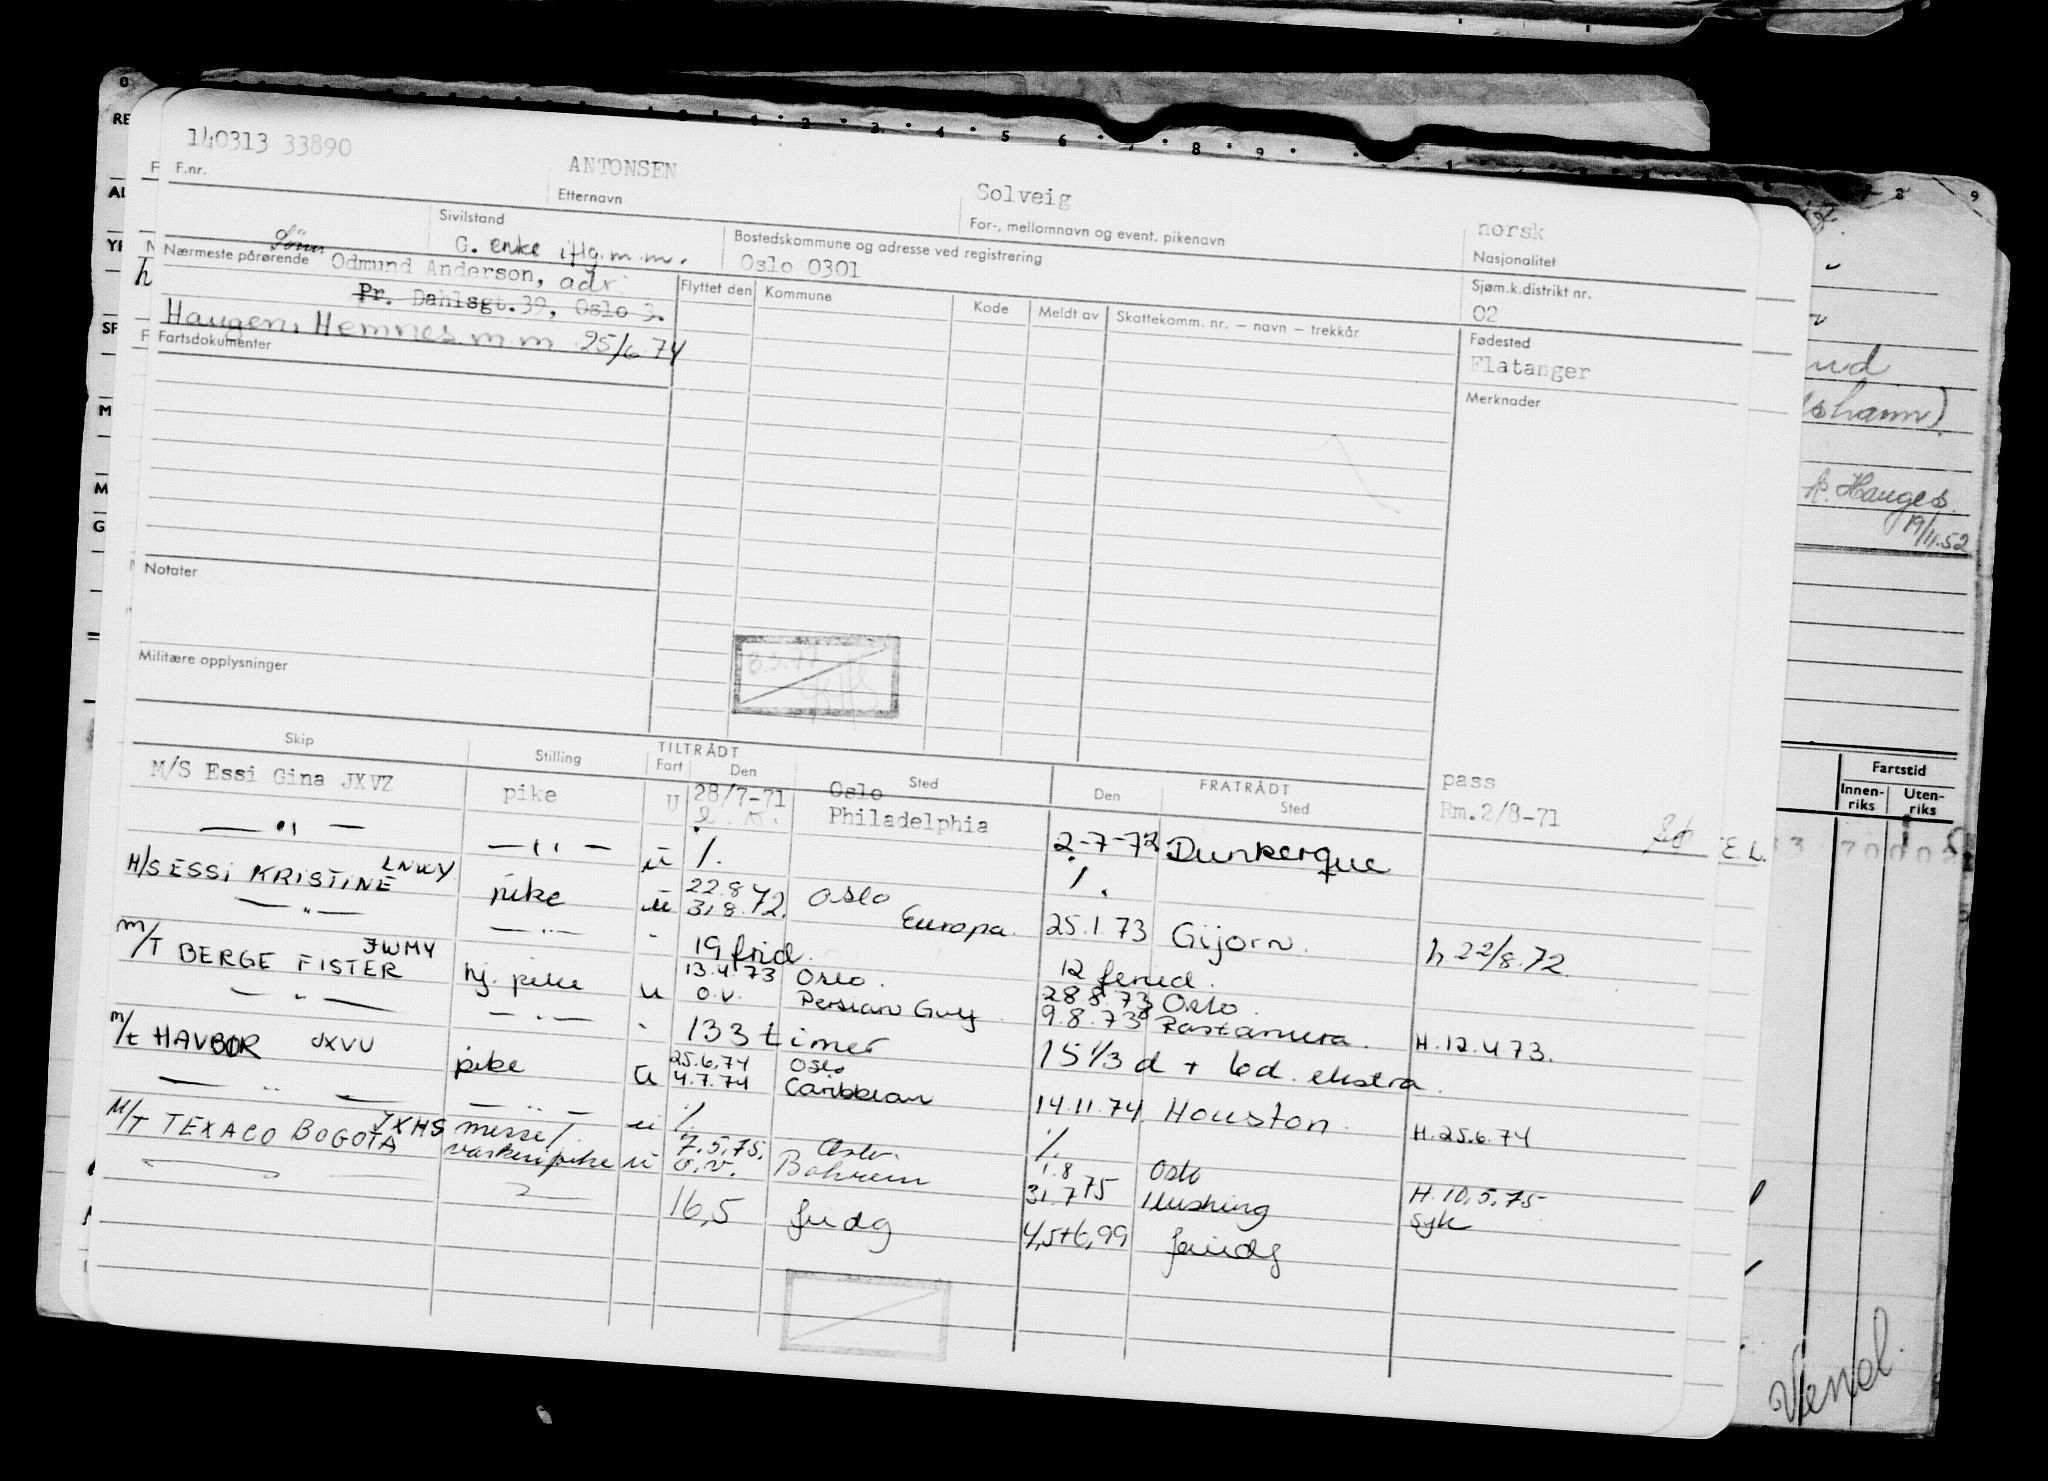 140313 33890
F.nr.
ANTONSEN
Etternavn
Solveig
For-, mellomnavn og event. pikenavn
norsk
Nasjonalitet
Sivilstand
G. enke iflg. m.m.
Bostedskommune og adresse ved registrering
Oslo 0301
Sjøm.k.distrikt nr.
02
Nærmeste pårørende
Sønn
Odmund Anderson, adr.
Pr. Dahlsgt.39, Oslo 3.
Haugen, Hemnes m.m 25/6.74
Flyttet den
Kommune
Kode
Meldt av
Skattekomm. nr. – navn – trekkår
Fødested
Flatanger
Fartsdokumenter
Merknader
Notater
Militære opplysninger
Skip
Stilling
TILTRÅDT
Fart
Den
Sted
FRATRÅDT
Den
Sted
M/S Essi Gina JXVZ pike U 28/7-71 Oslo pass
Philadelphia Rm.2/8-71
— " — — " — u ⁒ 2-7-72 Dunkerque
M/S ESSI KRISTINE LNWY pike u 22.8 Oslo ⁒
— " — — " — 31.8.72. Europa. 25.1.73 Gijorn. h 22/8.72.
19 frid. 12 feried.
M/T BERGE FISTER JWMY hj. pike u 13.4.73 Oslo. 28.8.73 Oslo.
— " — — " — o.v. Persian Gulf 9.8.73 Rastanura. H.12.4.73.
133 timer 15 1/3 d + 6d. ekstra.
m/t HAVBØR JXVU pike U 25.6.74 Oslo
4.7.74 Caribbean 14.11.74 Houston. H.25.6.74
— " — — " — u ⁒ ⁒
M/T TEXACO BOGOTA JXHS messe/ vaskeripike u 7.5.75. Oslo. 1.8 Oslo
o.v. Bahrein 31.7 75 Flushing H.10.5.75
syk
16,5 fridg 4,5+6,99 feriedg
A. Hauges
19/11.52
Fartstid
Innenriks
Utenriks
Vend.